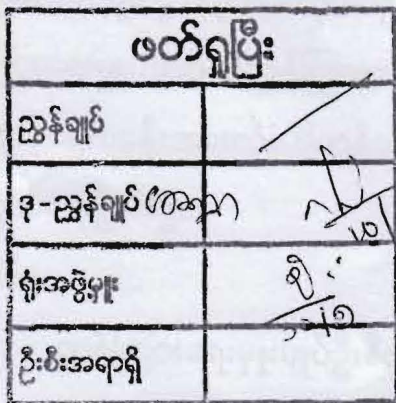 ဖတ်ရှုပြီး
ညွှန်ချုပ်
ဒု-ညွှန်ချုပ်
ရုံးအဖွဲ့မှူး
ဦးစီးအရာရှိ